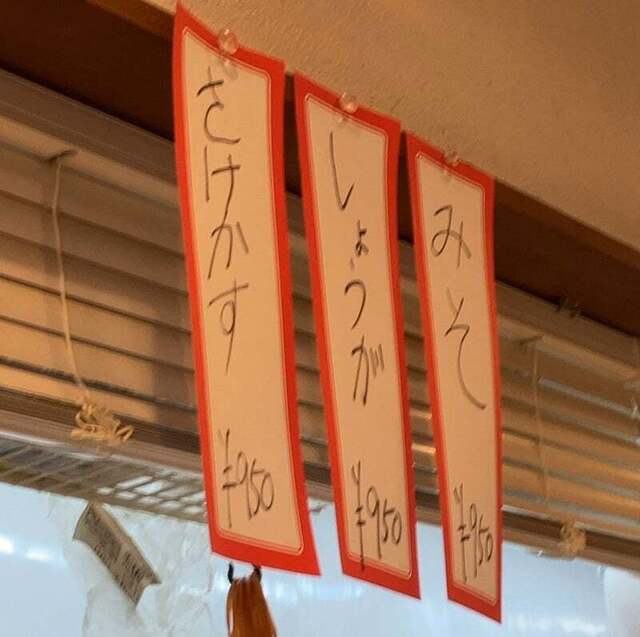 さけかす
¥950
しょうが
¥950
みそ
¥950